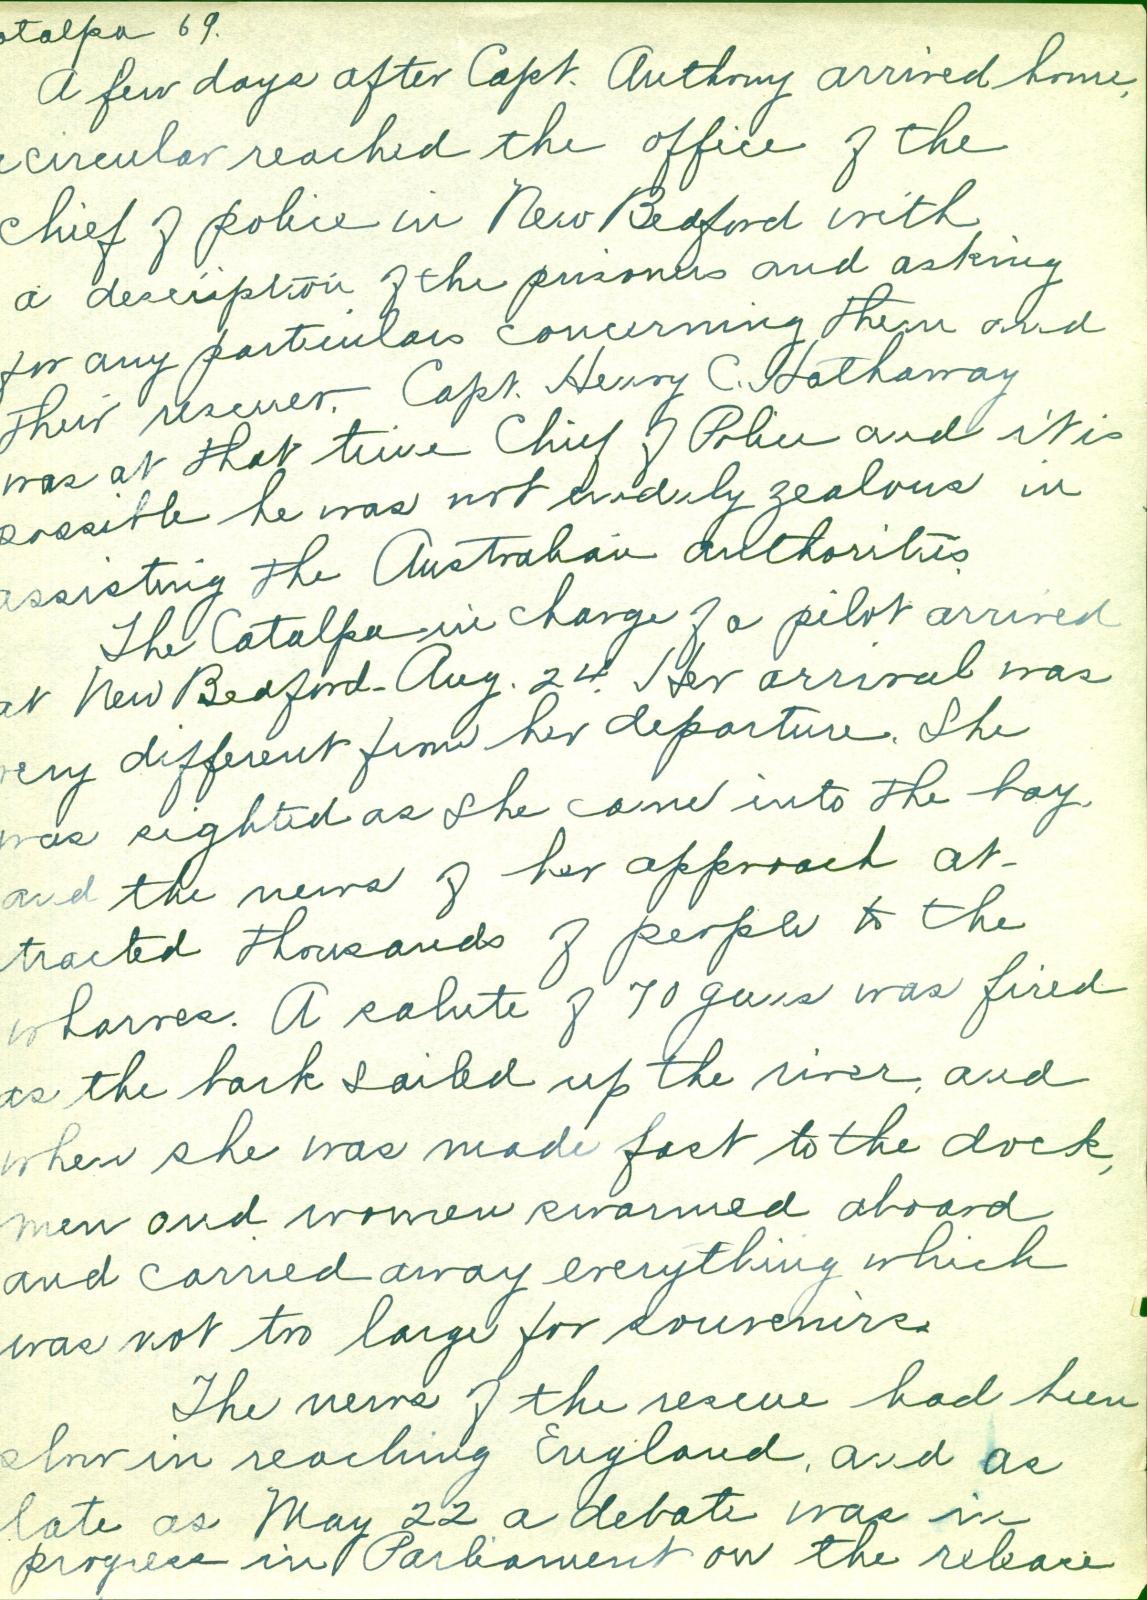 atalpa 69.
A few days after Capt. Anthony arrived home,
a circular reached the office of the
chief of police in New Bedford with
a description of the prisoners and asking
for any particulars concerning them and
their rescuer. Capt. Henry C. Hathaway
was at that time Chief of Police and it is
possible he was not unduly zealous in
assisting the Australian authorities.
The Catalpa in charge of a pilot arrived
at New Bedford - Aug. 24. Her arrival was
very different from her departure. She
was sighted as she came into the bay,
and the news of her approach at-
tracted thousands of people to the
wharves. A salute of 70 guns was fired
as the bark sailed up the river, and
when she was made fast to the dock,
men and women swarmed aboard
and carried away everything which
was not too large for souvenirs.
The news of the rescue had been
slow in reaching England, and as
late as May 22 a debate was in
progress in Parliament on the release